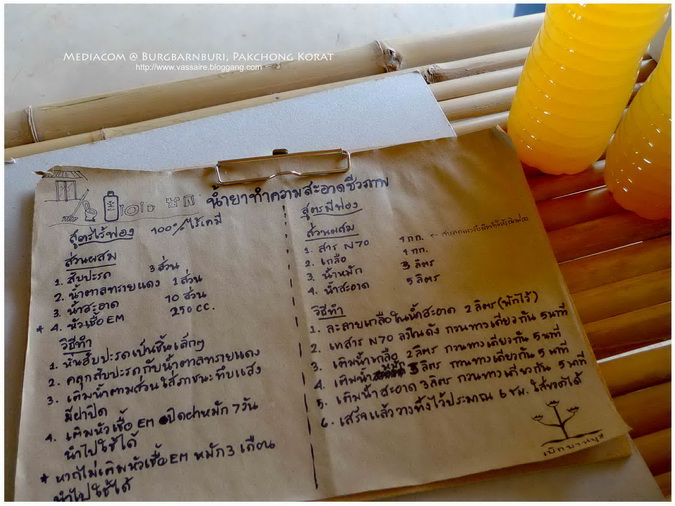 MEDIACOM @ BURGBARNBURI, PAKCHONG KORAT
http://www.yassaire.bloggang.com
น้ำยาทำความสะอาดชีวภาพ
สูตรไร้ฟอง 100% ไร้เคมี
ส่วนผสม
1. สับปะรด 3 ส่วน
2. น้ำตาลทรายแดง 1 ส่วน
3. น้ำสะอาด 10 ส่วน
* 4. หัวเชื้อ EM 250 cc.
วิธีทำ
1. หั่นสับปะรดเป็นชิ้นเล็กๆ
2. คลุกสับปะรดกับน้ำตาลทรายแดง
3. เติมน้ำตามส่วน ใส่ภาชนะทึบแสง
มีฝาปิด
4. เติมหัวเชื้อ EM ปิดฝาหมัก 7 วัน
นำไปใช้ได้
* หากไม่เติมหัวเชื้อ EM หมัก 3 เดือน
นำไปใช้ได้
สูตรมีฟอง
ส่วนผสม
1. สาร N70 1 กก.
2. เกลือ 1 กก.
3. น้ำหมัก 3 ลิตร
4. น้ำสะอาด 5 ลิตร
วิธีทำ
1. ละลายเกลือในน้ำสะอาด 2 ลิตร (พักไว้)
2. เทสาร N70 ลงในถัง กวนทางเดียวกัน 5 นาที
3. เติมน้ำเกลือ 2 ลิตร กวนทางเดียวกัน 5 นาที
4. เติมน้ำหมัก 3 ลิตร กวนทางเดียวกัน 5 นาที
5. เติมน้ำสะอาด 3 ลิตร กวนทางเดียวกัน 5 นาที
6. เสร็จแล้ววางทิ้งไว้ประมาณ 6 ชม. ใส่ขวดได้